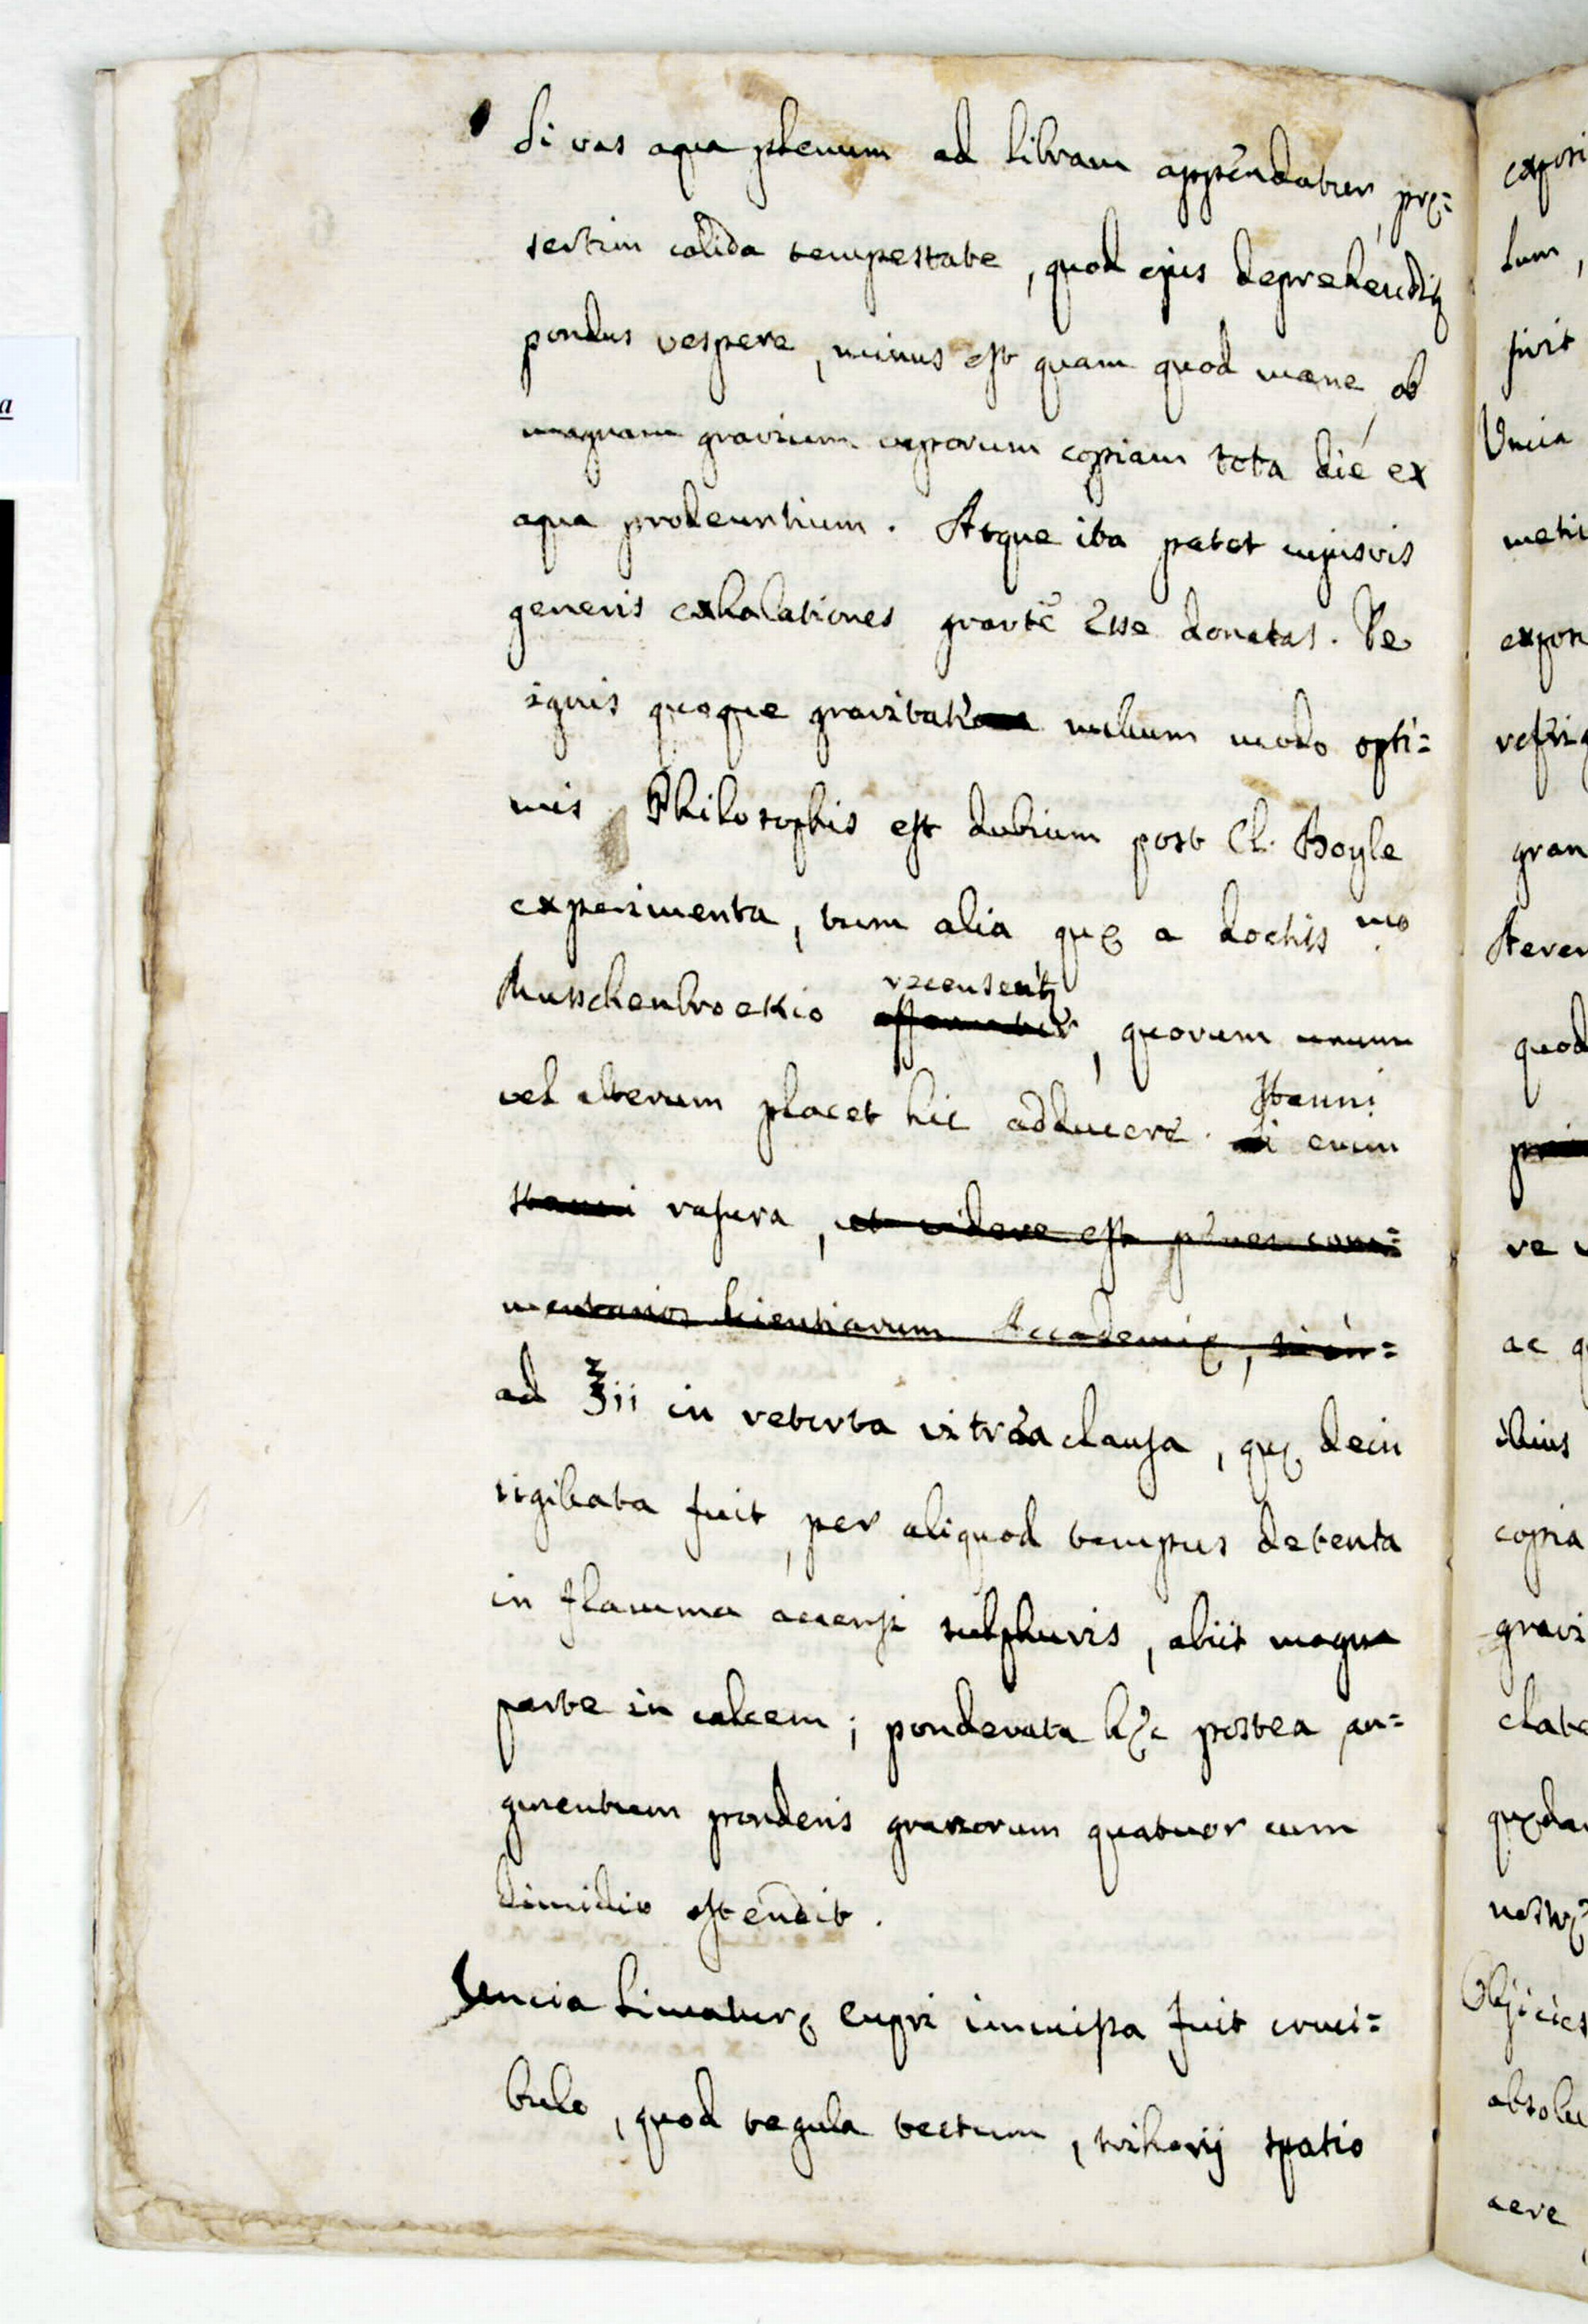 Si vas aqua plenum ad libram appendatur, prę=
sertim calida tempestate, quod ejus deprehendit
pondus vespere, minus est quam quod mane, ob
magnam gravium vaporum copiam tota die ex
aqua prodeuntium. Atque ita patet cujusvis
generis exhalationes gravitē esse donatas. De
ignis quoque gravitate nullum modo opti=
mis Philosophis est dubium post Cl. Boyle
experimenta, tum alia quę a doctiss.mo
Musschenbroekio
recensent
, quorum unum
vel alterum placet hic adducere.
Stanni
Si enim
stanni rasura, ut videre est penes com=
mentarios scientiarum Accademię,
ad ℥ii in retorta vitrea clausa, quę dein
sigillata fuit, per aliquod tempus detenta
in flamma accensi sulphuris, abiit magna
parte in calcem; ponderata hęc postea au=
gmentum ponderis granorum quatuor cum
dimidio ostendit.
Uncia limaturę cupri immissa fuit cruci=
bulo, quod tegula tectum, trihorij spatio
exposi
tum,
Uncia
expos
refrig
gran
quod
re
ac
illius
copia
gravi
quęda
Objicies
absolu
aere